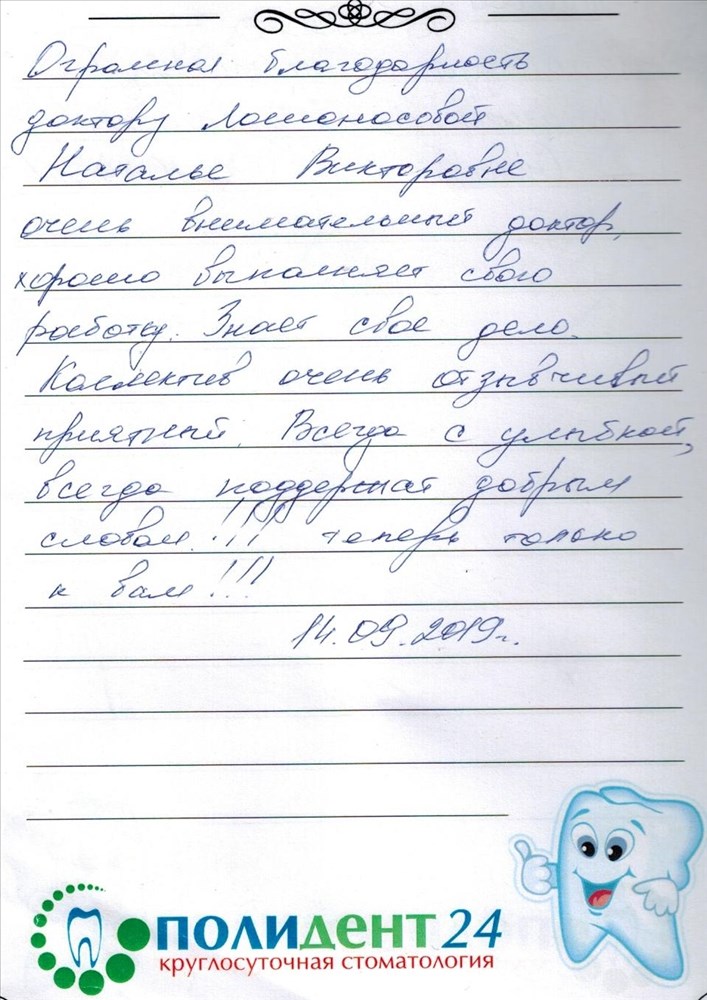 Огромная благодарность
доктору Ломоносовой
Наталье Викторовне
очень внимательный доктор,
хорошо выполняет свою
работу. Знает свое дело.
Коллектив очень отзывчивый
приятный. Всегда с улыбкой,
всегда поддержат добрым
словом!!! теперь только
к вам!!!
14.09.2019г.
ПОЛИДЕНТ 24
круглосуточная стоматология